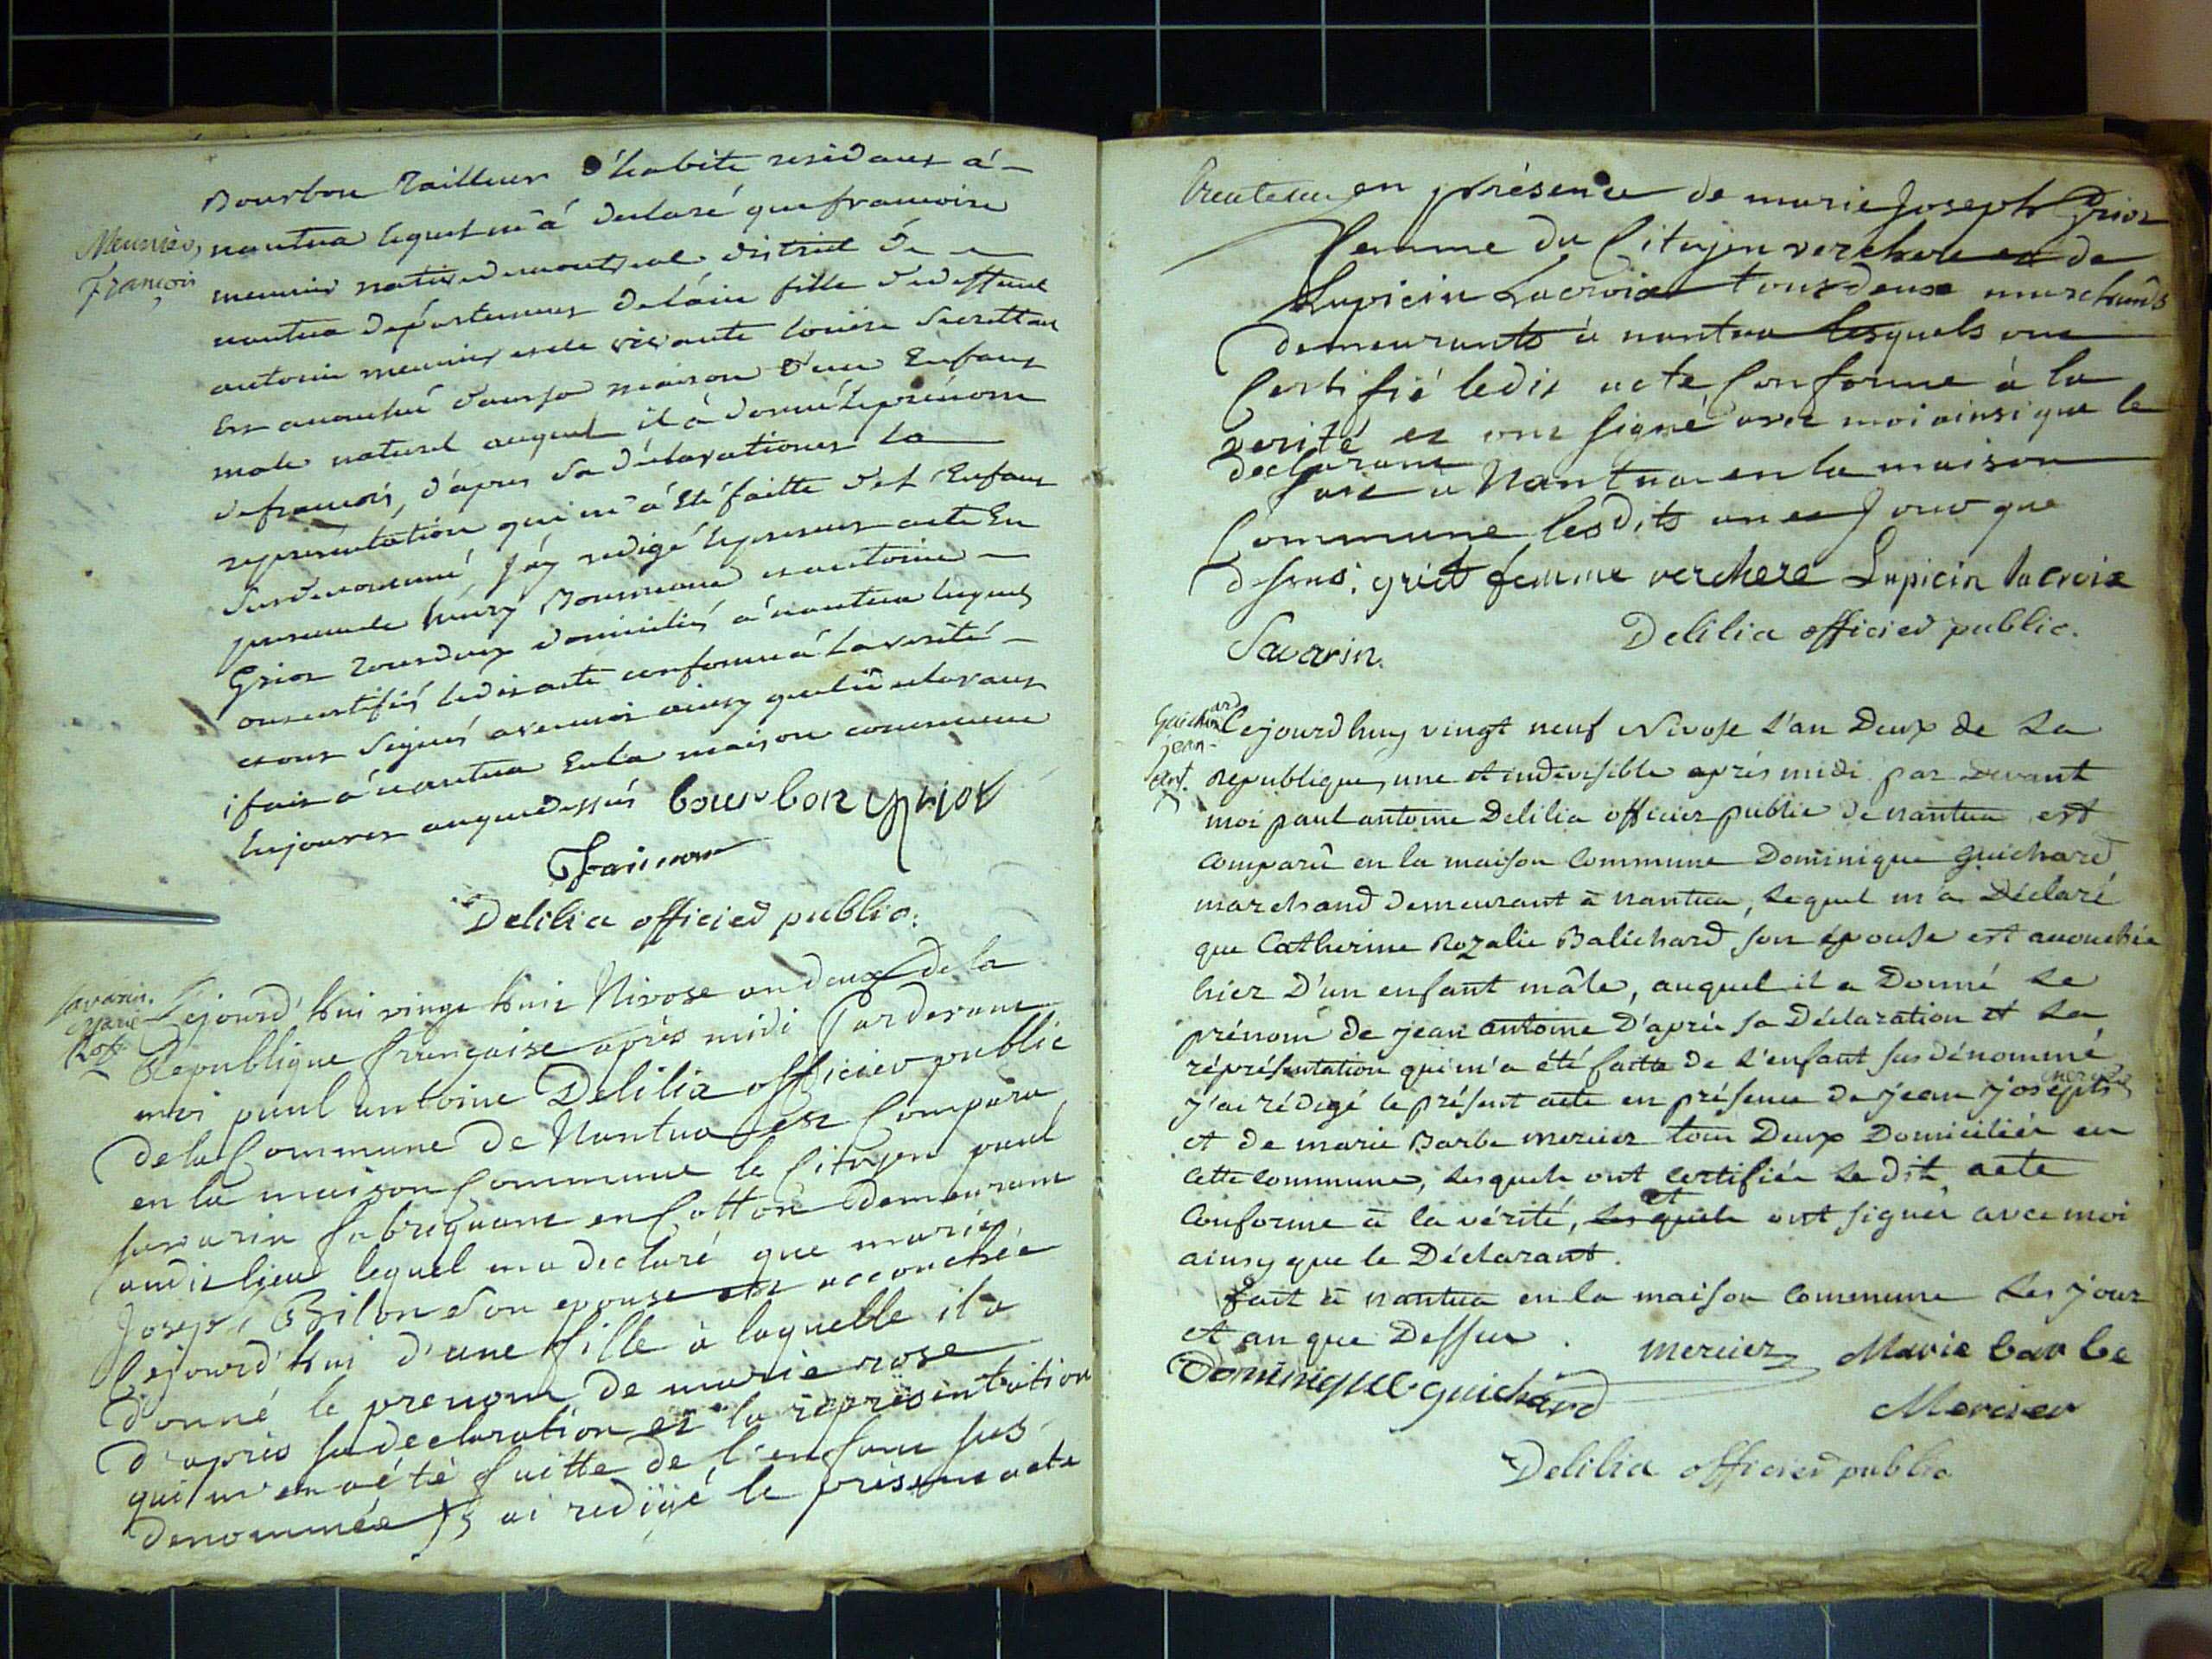 Bourbon Tailleur d'habits residant á
Meunier,
François
nantua lequel m'á declaré que francoise
meunier native de montreal district de
nantua département de l'ain fille de deffunt
antoine meunier et de vivante louise
Est accouchée dans sa maison d'un Enfant
male naturel auquel il á donné le prénom
de francois, d'aprés sa déclaration et la
representation qui m'á Eté faitte de l'Enfant
susdenommé, J'ay redigé le present acte En
presence de henry et antoine
Grior tous deux domiciliés á nantua lesquels
ont certifiés ledit acte conforme á la verité
et ont signés avec moi ainsy que le declarant
fait á nantua En la maison commune
les jour et an que dessus bourbon grior
Delilia officier public.
Savarin.
Marie
Rose
Cejourd'hui vingt huit Nivose an deux de la
Republique française après midi Pardevant
moi paul antoine Delilia officier public
de la Commune de Nantua est Comparu
en la maison Commune le Citoyen paul
Savarin fabriquant en Cotton demeurant
audit lieu lequel ma declaré que marie
Joseph Bilon son epouse est accouchée
Cejourd'hui d'une fille à laquelle il a
donné le prenom de marie rose
d'après sa declaration et la représentation
qui m'en a été faitte de l'enfant sus
denommée J'ai redigé le présent acte
en présence de marie Joseph Grior
femme du Citoyen verchere et de
Lupicin Lacroix tous deux marchands
demeurants à nantua lesquels ont
Certifié ledit acte Conforme à la
verité et ont signé avec moi ainsi que le
declarant
fait à Nantua en la maison
Commune lesdits an et Jour que
dessus. griot femme verchere Lupicin lacroix
Savarin.
Delilia officier public.
Guichard
jean
ant.
Cejourdhuy vingt neuf Nivose l'an Deux de La
Republique, une et indivisible après midi par devant
moi paul antoine Delilia officier public de nantua est
comparû en la maison Commune Dominique guichard
marchand demeurant à nantua, Lequel m'a Déclaré
que Catherine Rozalie Balichard son épouse est accouchée
hier D'un enfant mâle, auquel il a Donné Le
prénom de jean antoine D'après sa Déclaration et La
réprésentation qui m'a été faitte de L'enfant susdénommé
mercier
J'ai rédigé le présent acte en présence de jean joseph
et de marie Barbe mercier tous Deux Domiciliés en
cette commune, Lesquels ont certifiés Le dit acte
et
Conforme à la vérité, Lesquels ont signés avec moi
ainsy que le Déclarant.
fait à nantua en la maison Commune Les jour
et an que Dessus.
mercier Marie barbe
Dominique guichard
Mercier
Delilia officier public